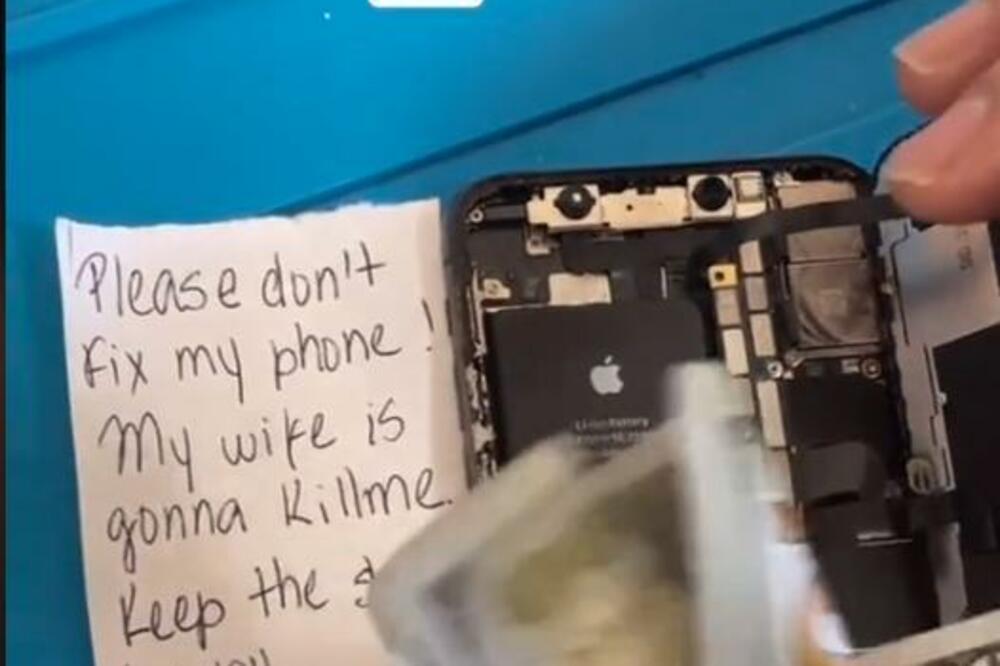 Please don't
fix my phone!
My wife is
gonna killme.
Keep the $
Li-ion Battery